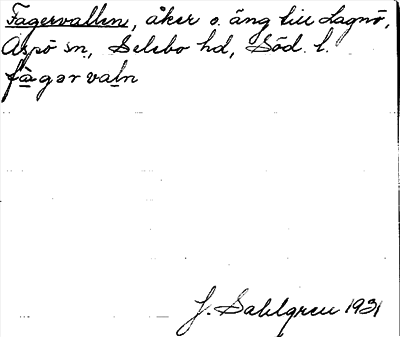 Fagervallen, åker o. äng till Lagnö,
Aspö sn., Selebo hd, Söd. l.
fàgər valn
J. Sahlgren 1931